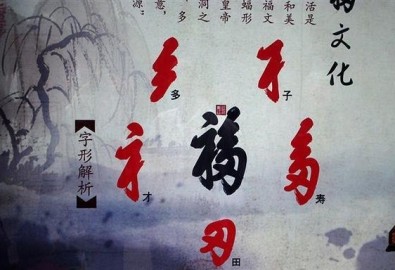 的文化
活是
和美
福文
蝠形
皇帝
洞之
，多
意，
源：
【字形解析】
多
子
才
福
寿
田